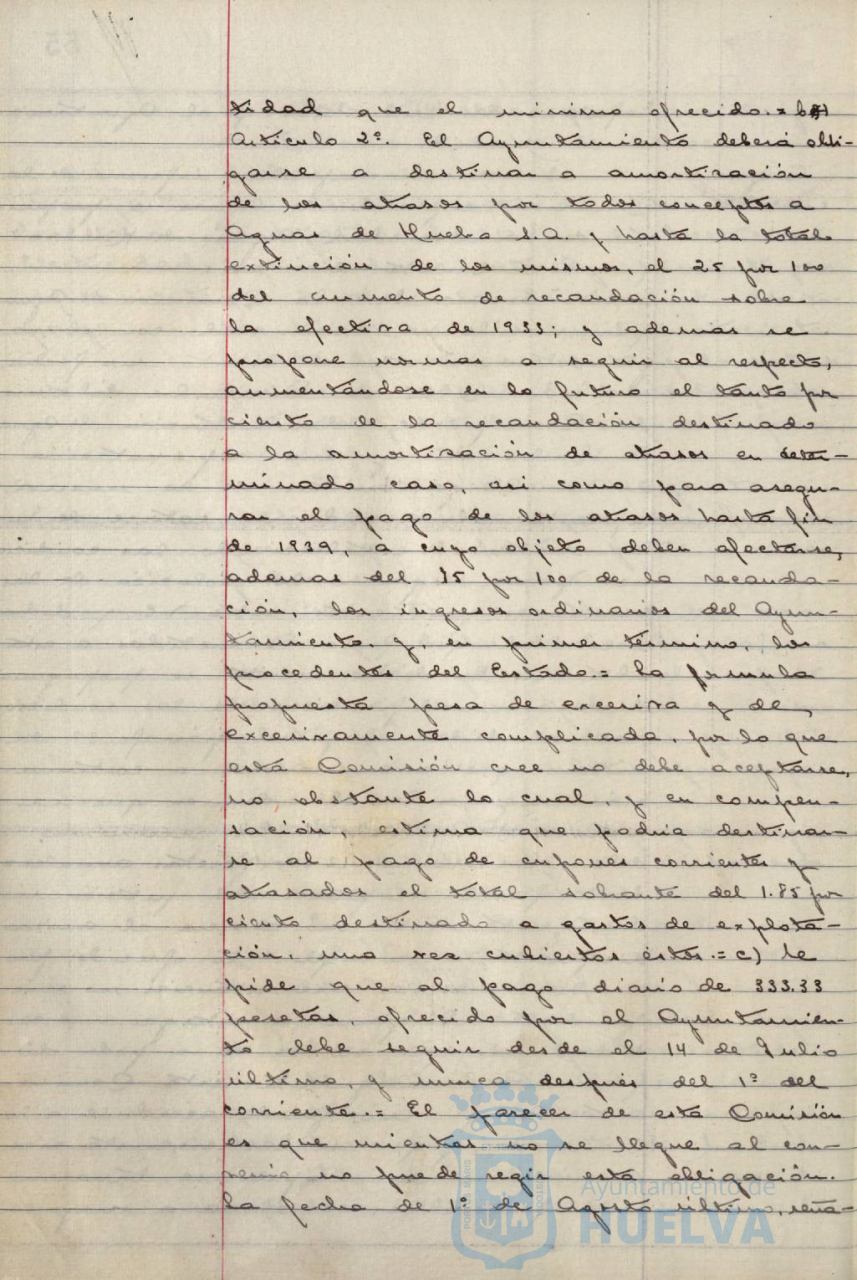 tidad que el minimo ofrecido.= b)
Articulo 2º. El Ayuntamiento deberá obli-
garse a destinar a amortización
de los atrasos por todos conceptos a
Aguas de Huelva S.A. y hasta la total
extinción de los mismos, el 25 por 100
del aumento de recaudación sobre
la efectiva de 1933; y ademas se
propone normas a seguir al respecto,
aumentándose en lo futuro el tanto por
ciento de la recaudación destinado
a la amortización de atrasos en deter-
minado caso, asi como para asegu-
rar el pago de los atrasos hasta fin
de 1939, a cuyo objeto deben afectarse,
ademas del 75 por 100 de la recauda-
ción, los ingresos ordinarios del Ayun-
tamiento, y, en primer término, los
procedentes del Estado.= La formula
propuesta pesa de excesiva y de,
excesivamente complicada, por lo que
está Comisión cree no debe aceptarse,
no obstante lo cual, y en compen-
sación, estima que podria destinar-
se al pago de cupones corrientes y
atrasados el total sobrante del 1.85 por
ciento destinado a gastos de explota-
ción, una vez cubiertos éstos.= c) Se
pide que al pago diario de 333.33
pesetas, ofrecido por el Ayuntamien-
to debe seguir desde el 14 de Julio
último, y nunca después del 1º del
corriente.= El parecer de está Comisión
es que mientas no se llegue al con-
venio no puede regir está obligación.
La fecha de 1º de Agosto último, seña-
Ayuntamiento de
HUELVA